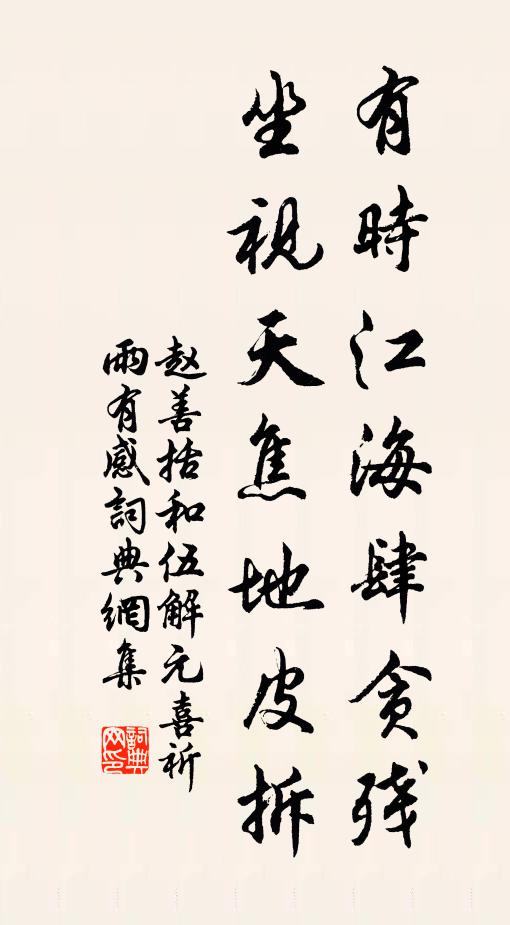 有時江海肆貪残
坐視天焦地皮拆
赵善括和伍解元喜祈
雨有感詞典網集
詞典网印